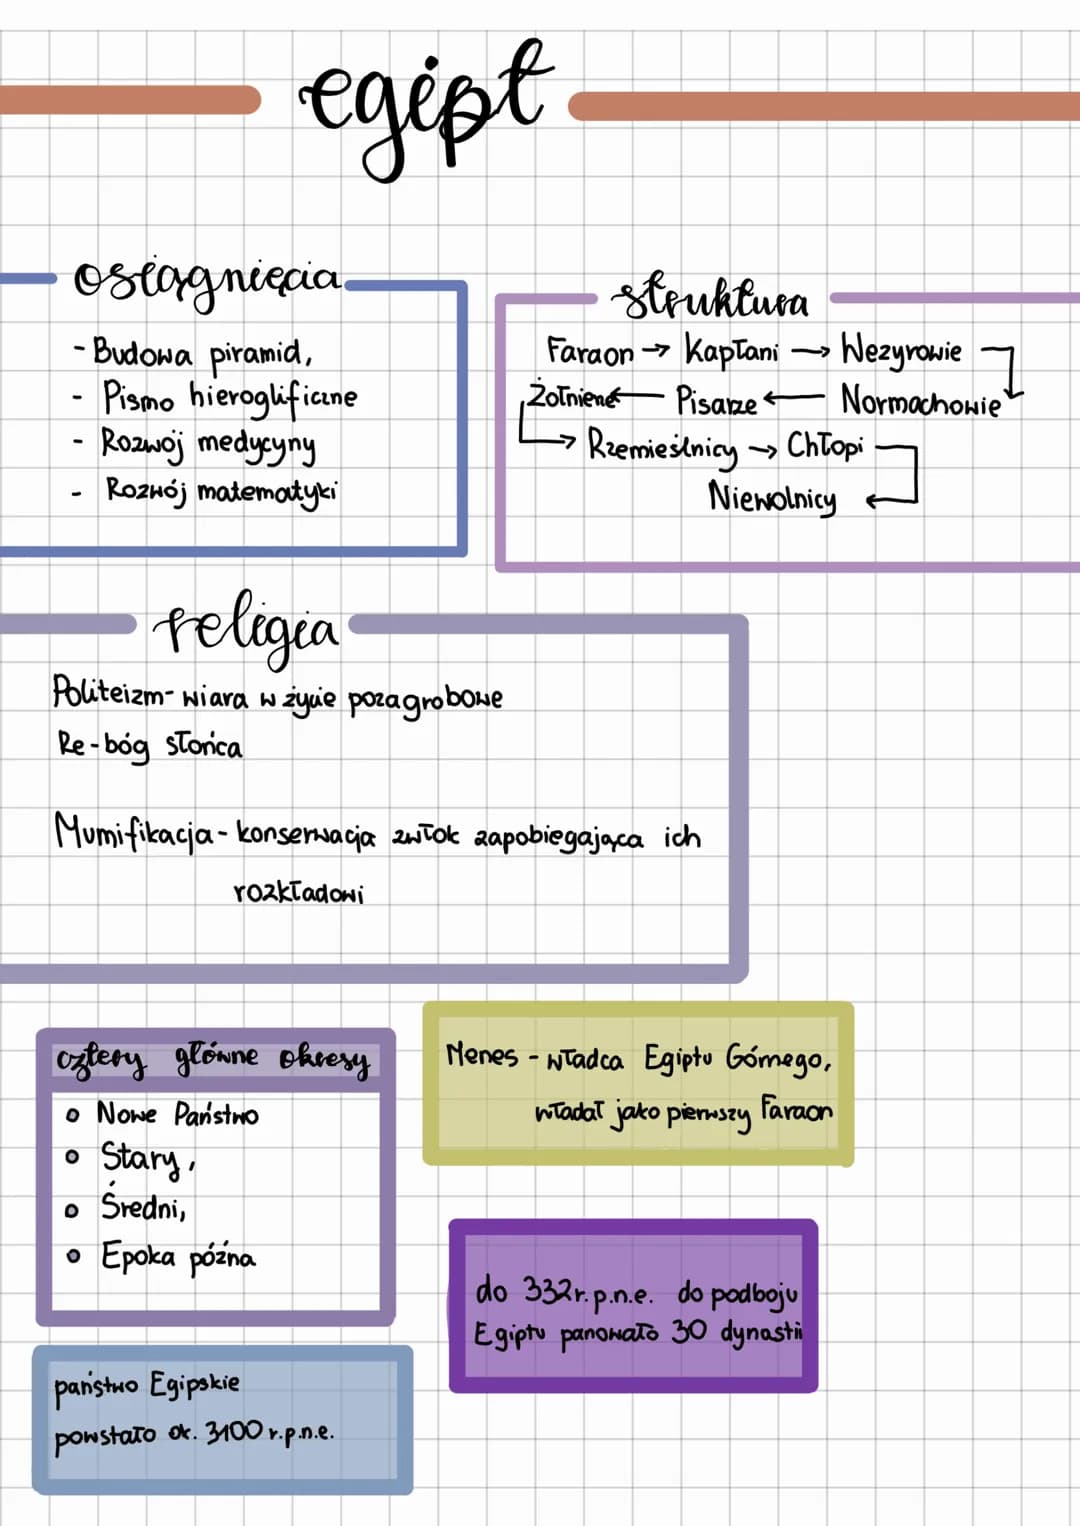 egipt
osiągnięcia
- Budowa piramid,
- Pismo hieroglificzne
- Rozwój medycyny
- Rozwój matematyki
struktura
Faraon → Kapłani → Wezyrowie
Żołnierze ← Pisarze ← Normachowie
→ Rzemieślnicy → Chłopi
Niewolnicy ←
religia
Politeizm - wiara w życie pozagrobowe
Re - bóg słońca
Mumifikacja - konserwacja zwłok zapobiegająca ich
rozkładowi
cztery główne okresy
o Nowe Państwo
o Stary,
o Średni,
o Epoka późna
Menes - władca Egiptu Górnego,
władał jako pierwszy Faraon
do 332r. p.n.e. do podboju
Egiptu panowało 30 dynastii
państwo Egipskie
powstało ok. 3100 r.p.n.e.